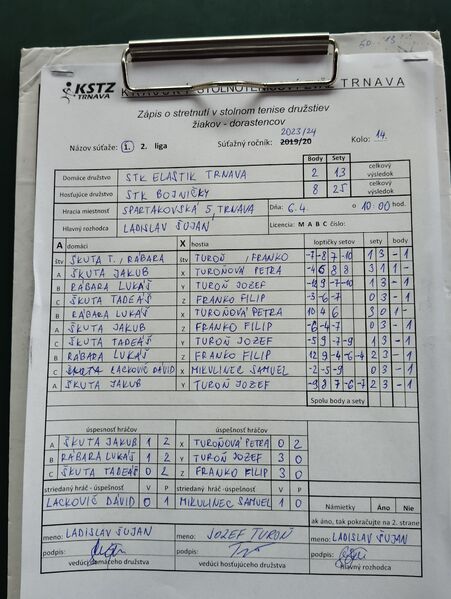 KSTZ
TRNAVA
TRNAVA
Zápis o stretnutí v stolnom tenise družstiev
žiakov - dorastencov
2023/24
Názov súťaže: 1. 2. liga Súťažný ročník: 2019/20 Kolo: 14.
Body Sety celkový výsledok
Domáce družstvo STK ELASTIK TRNAVA 2 13
Hosťujúce družstvo STK BOJNIČKY 8 25 celkový výsledok
Hracia miestnosť SPARTAKOVSKÁ 5, TRNAVA Dňa: 6.4 o 10:00 hod.
Hlavný rozhodca LADISLAV ŠUJAN Licencia: M A B C číslo:
A domáci X hostia loptičky setov sety body
štv ŠKUTA T., RÁBARA štv TUROŇ, FRANKO -7 -8 7 -10 1 3 - 1
A ŠKUTA JAKUB X TUROŇOVÁ PETRA 3 1 1 -
B RÁBARA LUKÁŠ Y TUROŇ JOZEF 1 3 - 1
C ŠKUTA TADEÁŠ Z FRANKO FILIP -3 -6 -7 0 3 - 1
B RÁBARA LUKÁŠ X TUROŇOVÁ PETRA 10 4 6 3 0 1 -
A ŠKUTA JAKUB Z FRANKO FILIP -6 -4 -7 0 3 - 1
C ŠKUTA TADEÁŠ Y TUROŇ JOZEF -5 9 -7 -9 1 3 - 1
B RÁBARA LUKÁŠ Z FRANKO FILIP 12 9 -4 -6 -4 2 3 - 1
C LACKOVIČ DÁVID X MIKULINEC SAMUEL -2 -5 -9 0 3 - 1
A ŠKUTA JAKUB Y TUROŇ JOZEF -9 8 7 -6 -2 2 3 - 1
Spolu body a sety
úspesnosť hráčov úspešnosť hráčov
A ŠKUTA JAKUB 1 2 X TUROŇOVÁ PETRA 0 2
B RÁBARA LUKÁŠ 1 2 Y TUROŇ JOZEF 3 0
C ŠKUTA TADEÁŠ 0 2 Z FRANKO FILIP 3 0
striedaný hráč - úspešnosť V P striedaný hráč - úspešnosť V P
LACKOVIČ DÁVID 0 1 MIKULINEC SAMUEL 1 0 Námietky Áno Nie
ak áno, tak pokračujte na 2. strane
meno: LADISLAV ŠUJAN meno: JOZEF TUROŇ meno: LADISLAV ŠUJAN
podpis: podpis: podpis:
vedúci domáceho družstva vedúci hosťujúceho družstva hlavný rozhodca